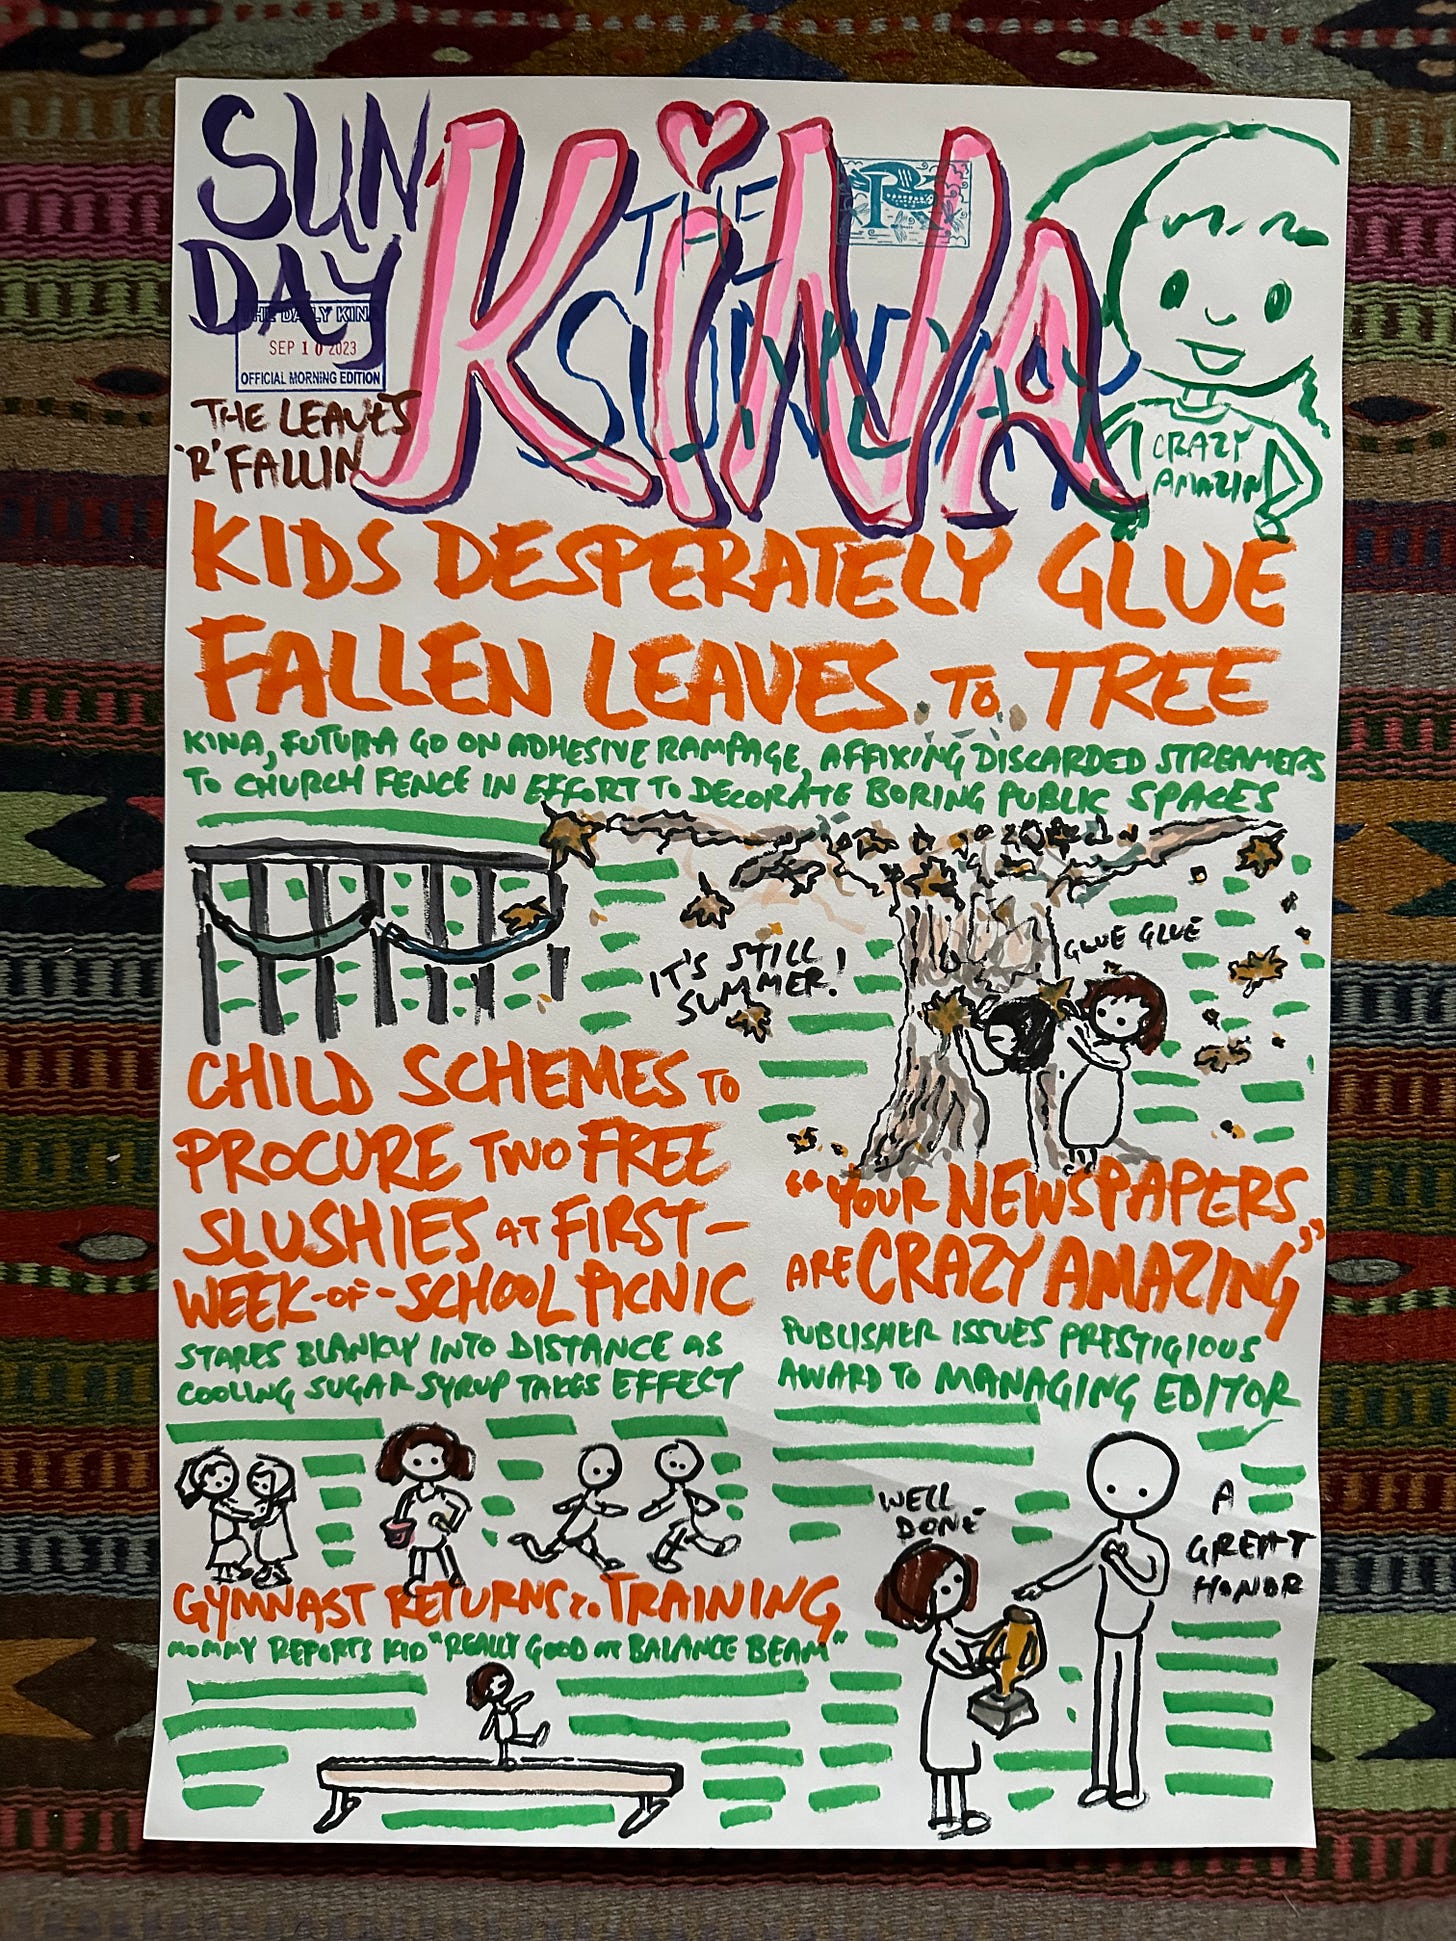 SUN
DAY
KiNA
THE
SUNDAY
THE DAILY KINA
SEP 10 2023
OFFICIAL MORNING EDITION
THE LEAVES
'R' FALLIN
CRAZY
AMAZIN
KIDS DESPERATELY GLUE
FALLEN LEAVES TO TREE
KINA, FUTURA GO ON ADHESIVE RAMPAGE, AFFIXING DISCARDED STREAMERS
TO CHURCH FENCE IN EFFORT TO DECORATE BORING PUBLIC SPACES
IT'S STILL
SUMMER!
GLUE GLUE
CHILD SCHEMES TO
PROCURE TWO FREE
SLUSHIES AT FIRST-
WEEK-OF-SCHOOL PICNIC
STARES BLANKLY INTO DISTANCE AS
COOLING SUGAR SYRUP TAKES EFFECT
"YOUR NEWSPAPERS
ARE CRAZY AMAZING"
PUBLISHER ISSUES PRESTIGIOUS
AWARD TO MANAGING EDITOR
WELL
DONE
A
GREAT
HONOR
GYMNAST RETURNS TO TRAINING
MOMMY REPORTS KID "REALLY GOOD AT BALANCE BEAM"